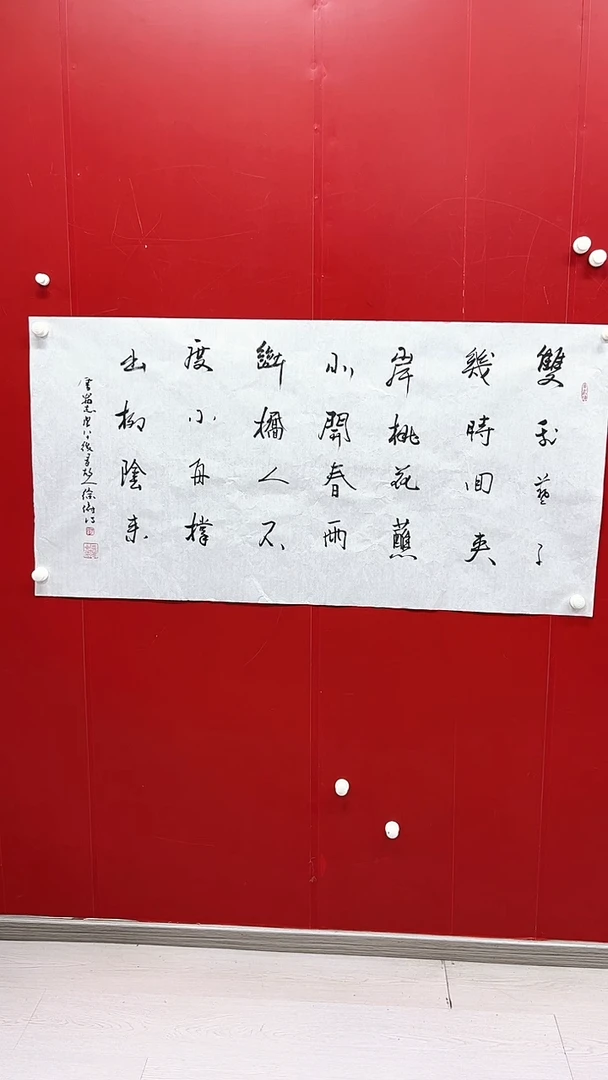 雙飛燕子
幾時回夾
岸桃花蘸
水開春雨
斷橋人不
度小舟撐
出柳陰來